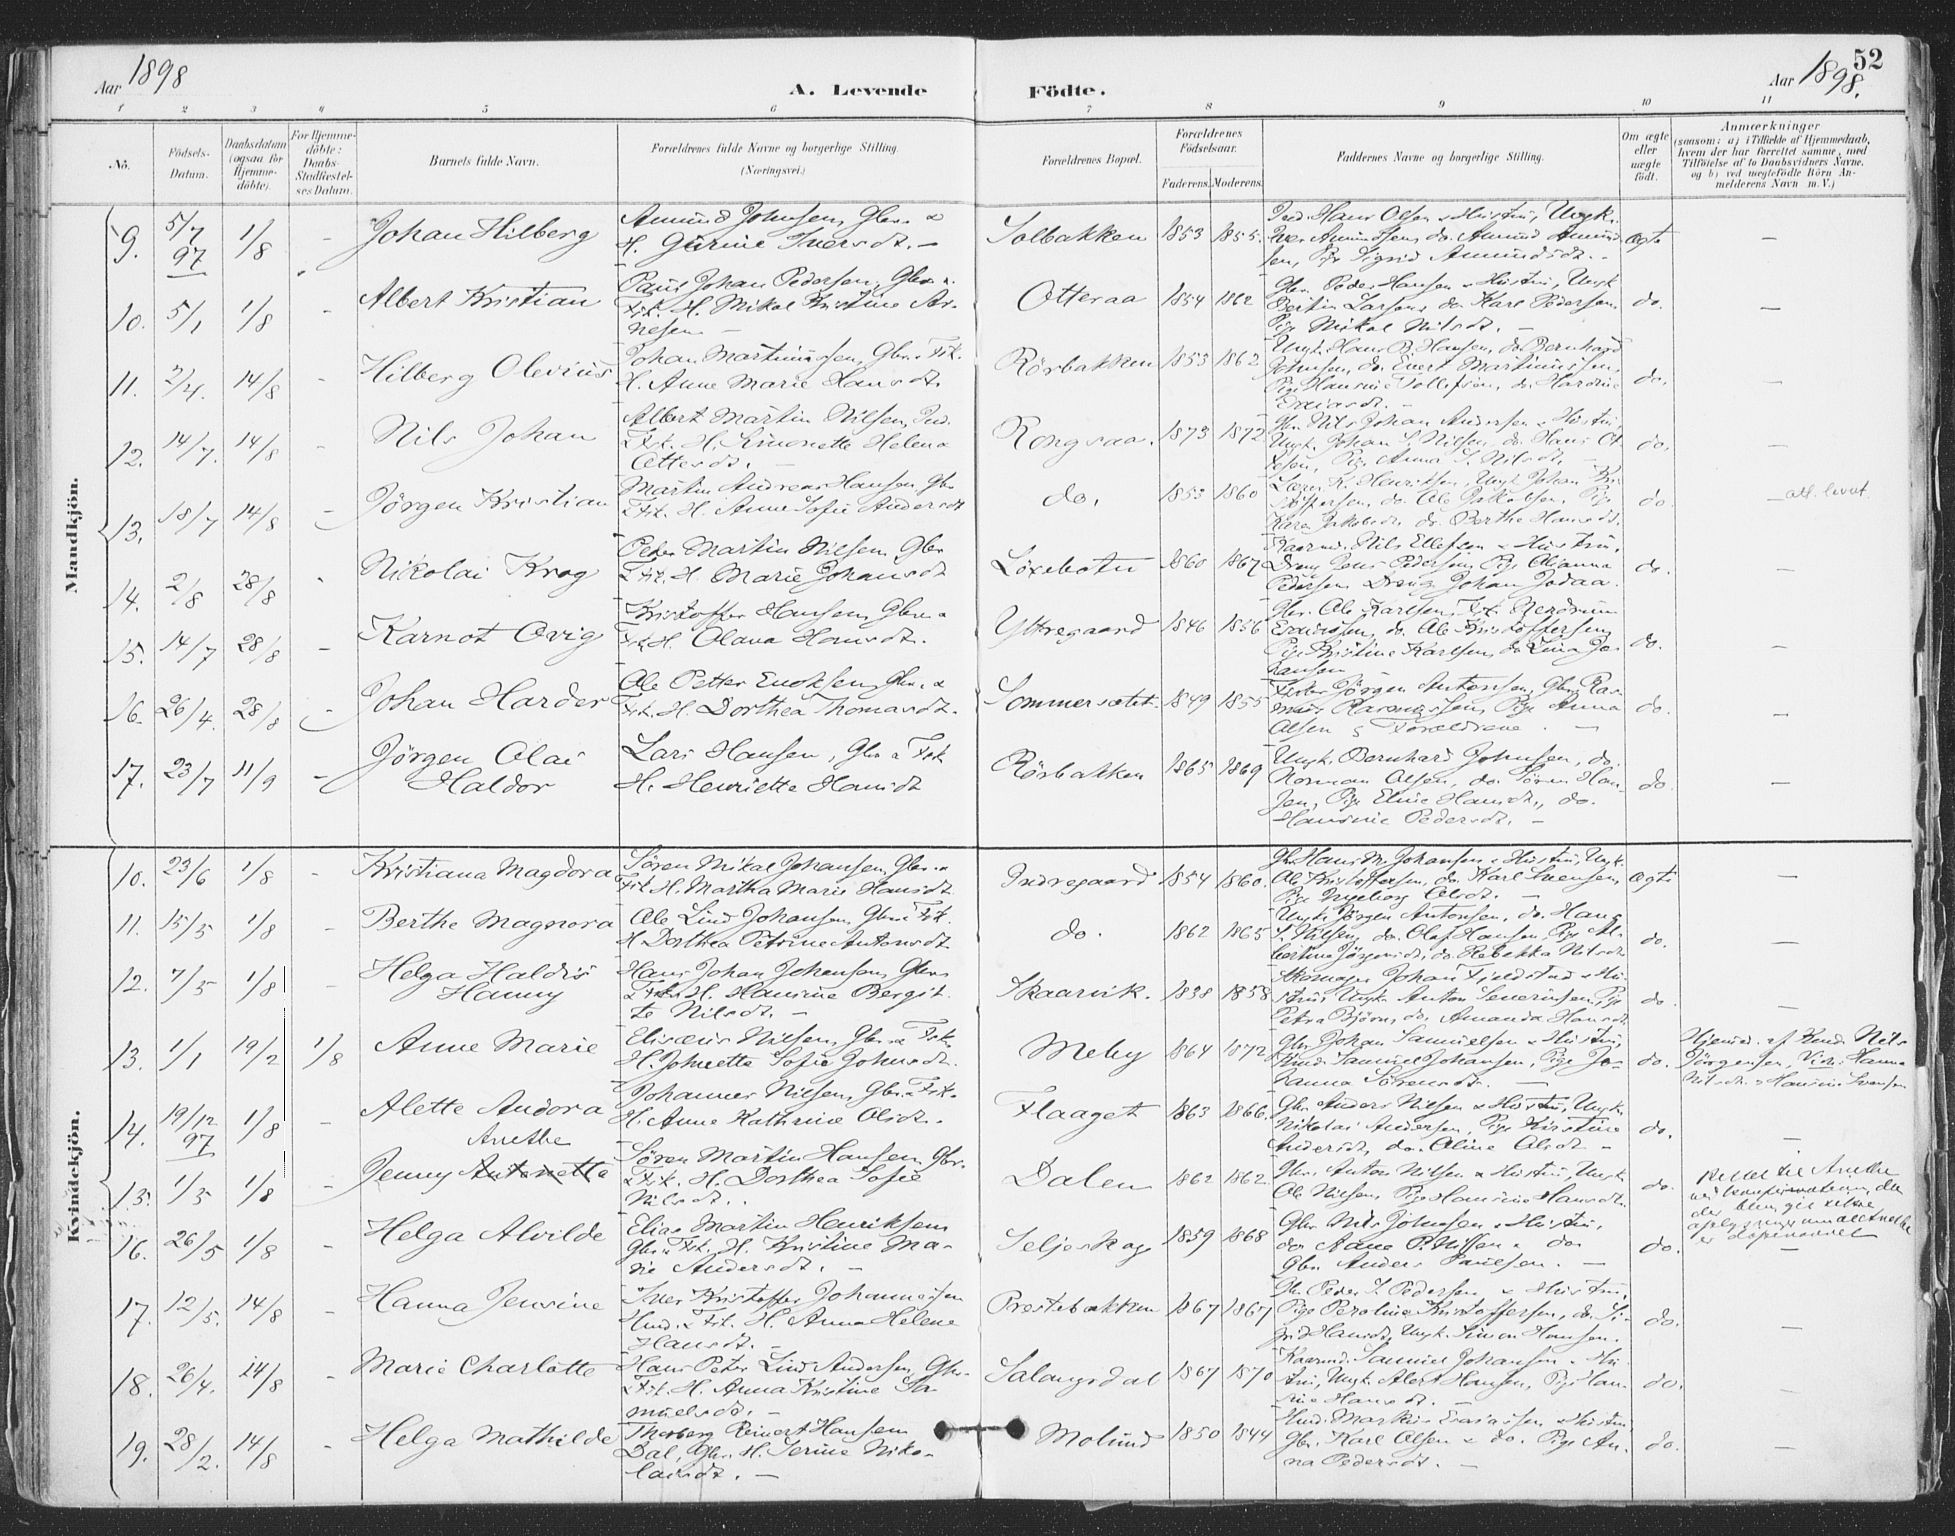 Aar 1898
A. Levende Födte.
Aar 1898.
52
1 2 3 4 5 6 7 8 9 10 11
No.
Födsels-Datum.
Daabsdatum (ogsaa for Hjemmedöbte).
For Hjemmedöbte: Daabs-Stadfæstelses Datum.
Barnets fulde Navn.
Forældrenes fulde Navne og borgerlige Stilling. (Næringsvei.)
Forældrenes Bopæl.
Forældrenes Födselsaar.
Faderens. Moderens.
Faddernes Navne og borgerlige Stilling.
Om ægte eller uægte födt.
Anmærkninger
(saasom: a) i Tilfælde af Hjemmedaab, hvem der har forrettet samme, med Tilföielse af to Daabsvidners Navne, og b) ved uægtefödte Börn Anmelderens Navn m. V.)
Mandkjön.
9. 5/7 97 1/8 - Johan Hilberg
Amund Johnsen, Gbr. &
H. Gurine Iversdt. -
Solbakken 1853 1855.
Ind. Hans Olsen & Hustru, Ungk.
Iver Amundsen, do. Amund Amund-
sen, Pige Sigrid Amundsdt. -
ægte -
10. 5/1 1/8 - Albert Kristian
Paul Johan Pedersen, Gbr. &
Fisk. H. Mikal Kristine Ar-
nesen -
Otteraa 1854 1862
Gbr. Peder Hansen & Hustru, Ungk
Bertin Larsen, do. Karl Pedersen,
Pige Mikal Nilsdt. -
do. -
11. 2/4. 14/8 - Hilberg Olevius
Johan Martinussen, Gbr. & Fisk.
H. Anne Marie Hansdt.
Rörbakken 1853 1862
Ungk. Hans P. Hansen, do. Bernhard
Johnsen, do. Evert Martinussen,
Pige Hansine Tollefsen, do. Hardine
Esaiasdt. -
do. -
12. 14/7. 14/8 - Nils Johan
Albert Martin Nilsen, Ind.
& Fisk. H. Simonette Helena
Ottesdt. -
Rongsaa. 1873 1872
Gbr. Nils Johan Andersen & Hustru,
Ungk. Johan S. Nilsen, do. Hans Ot-
tesen, Pige Anna S. Nilsdt. -
do. -
13. 18/7 14/8 - Jörgen Kristian
Martin Andreas Hansen, Gbr.
& Fisk. H. Anne Sofie Andersdt
do. 1853 1860
Lars K. Henriksen, Ungk. Johan Kri-
stoffersen, do. Ole Jakobsen, Pige
Karen Jakobsdt, do. Berthe Hansdt.
do - att. levert.
14. 2/8 28/8 - Nikolai Krog
Peder Martin Nilsen, Gbr
& Fisk. H. Marie Johansdt
Löxebotn 1860 1867
Kaarmd. Nils Ellefsen & Hustru,
Dreng Jens Pedersen, Pige Olianna
Pedersen, Dreng Johan Jodaa.
do. -
15. 14/7 28/8 - Karnot Ovig
Kristoffer Hansen, Gbr. &
Fisk. H. Olava Hansdt.
Yttregaard 1846 1856
Gbr. Ole Karlsen, Fisk. Nerdrum
Esaiassen, do. Ole Kristoffersen,
Pige Kristine Karlsen, do. Lina Jo-
hansen
do. -
16. 26/4. 28/8 - Johan Harder
Ole Petter Enoksen, Gbr. &
Fisk. H. Dorthea Thomasdt.
Sommersætet. 1849 1855
Fisker Jörgen Antonsen, Gbr. Ras-
mus Rasmussen, Pige Anna
Olsen & Forældrene. -
do. -
17. 23/7 11/9 - Jörgen Olai
Haldor
Lars Hansen, Gbr & Fisk
H. Henriette Hansdt
Rörbakken 1865 1869
Ungk. Bernhard Johnsen, do.
Norman Olsen, do. Sören Han-
sen, Pige Eline Hansdt., do.
Hansine Pedersdt. -
do. -
Kvindekjön.
10. 23/6 1/8 - Kristiana Magdora
Sören Mikal Johansen, Gbr. &
Fisk. H. Martha Marie Hansdt
Indregaard 1854 1860.
Gbr. Hans M. Johansen & Hustru, Ungk.
Ole Kristoffersen, do. Karl Svensen,
Pige Ingeborg Olsdt. -
ægte -
11. 15/5 1/8 - Berthe Magnora
Ole Lind Johansen, Gbr. & Fisk.
H. Dorthea Petrine Antonsdt
do. 1862 1865
Ungk. Jörgen Antonsen, do. Hans
S. Nilsen, do. Olaf Hansen, Pige Al-
bertine Jörgensdt., do. Rebekka Nilsdt
do. -
12. 7/5 1/8 - Helga Haldis
Hanny
Hans Johan Johansen, Gbr
& Fisk. H. Hansine Bergit-
te Nilsdt. -
Skaarvik. 1838 1858
Johan Fjeldstad & Hu-
stru, Ungk. Anton Severinsen, Pige
Petra Björn, do. Amanda Hansdt.
do. -
13. 1/1 19/2 1/8 Anne Marie
Elisæus Nilsen, Gbr. & Fisk.
H. Johnette Sofie Johnsdt.
Meby 1864 1872
Gbr. Johan Samuelsen & Hustru,
Hmd. Samuel Johansen, Pige Jo-
hanna Sörensdt. -
do. Hjemd. af Hmd. Nils
Jörgensen, Vidn. Hanna
Nilsdt. & Hansine Svensen
14. 19/12 97 1/8 - Alette Andora
Johannes Nilsen, Gbr. & Fisk.
H. Anne Kathrine Olsdt.
Flaaget 1863 1866.
Gbr. Anders Nilsen & Hustru, Ungk.
Nikolai Andersen, Pige Kirstine
Andersdt, do. Oline Olsdt -
do. -
15. 1/5 1/8 - Anethe
Jenny Antonette
Sören Martin Hansen, Gbr.
& Fisk. H. Dorthea Sofie
Nilsdt. .
Dalen 1862 1862
Gbr. Anton Nilsen & Hustru, Ungk
Ole Nilsen, Pige Hansine Hansdt.
do. Rettet til Anethe
ved konfirmationen, da
der blev git sikre
oplysninger om at Anethe
er döpenavnet
16. 26/5 1/8 - Helga Alvilde
Elias Martin Henriksen
Gbr. & Fisk. H. Kristine Ma-
rie Andersdt. -
Seljeskog 1859 1868
Gbr. Nils Johnsen & Hustru,
do. Aane P. Nilssen & do
Gbr. Anders Paulsen. -
do. -
17. 12/5. 14/8 - Hanna Jensine
Iver Kristoffer Johannessen
Hmd. & Fisk. H. Anna Helene
Hansdt. -
Prestebakken 1867 1867
Gbr. Peder S. Pedersen & Hustru,
Pige Peroline Kristoffersen, do. Si-
grid Hansdt, Ungk. Simon Hansen.
do. -
18. 26/4. 14/8 - Marie Charlotte
Hans Peter Lind Andersen, Gbr.
& Fisk. H. Anna Kristine Sa-
muelsdt. -
Salangsdal 1867 1870
Kaarmd. Samuel Johansen & Hu-
stru, Ungk. Alert Hansen, Pige Han-
sine Hansdt. -
do. -
19. 28/2. 14/8 - Helga Mathilde
Thorberg Reinert Hansen
Dal, Gbr. H. Serine Niko-
laisdt. -
Molund 1850 1844
Hmd. Markus Esaiassen & Hustru,
Gbr. Karl Olsen & do. Pige An-
na Pedersdt. -
do. -